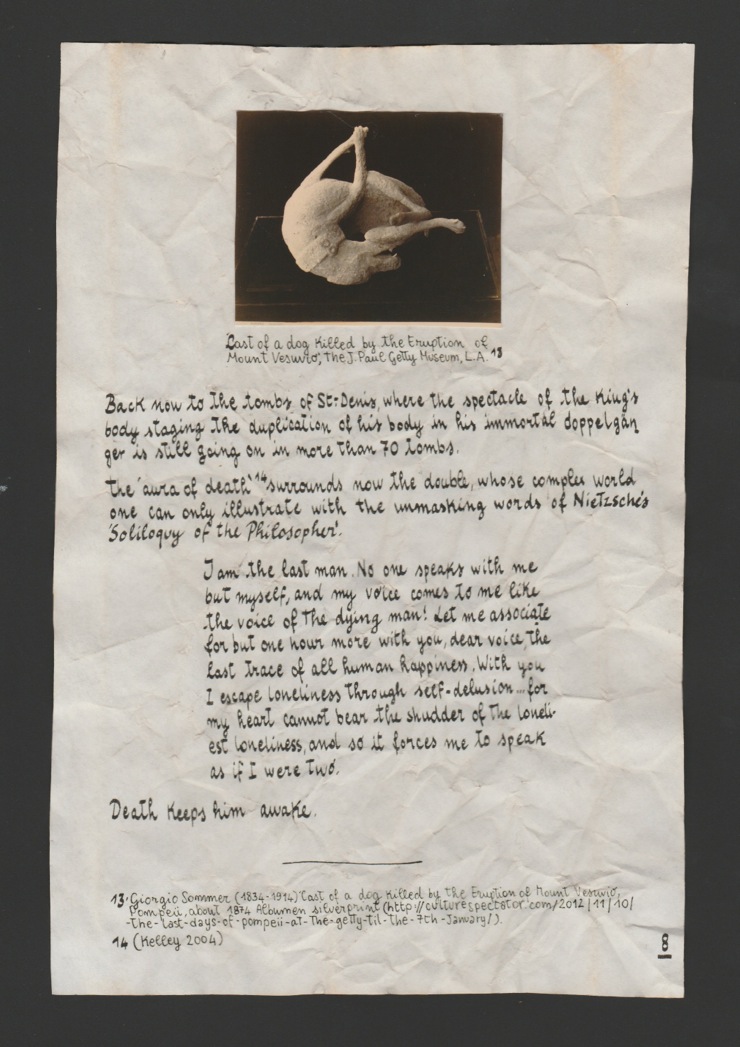 Cast of a dog killed by the Eruption of
Mount Vesuvio, The J. Paul Getty Museum, L.A. 13
Back now to the tombs of St-Denis, where the spectacle of the King's
body staging the duplication of his body in his immortal doppelgän
ger is still going on in more than 70 tombs.
The 'aura of death' 14 surrounds now the double, whose complex world
one can only illustrate with the unmasking words of Nietzsche's
'Soliloquy of the Philosopher'.
I am the last man. No one speaks with me
but myself, and my voice comes to me like
the voice of the dying man! Let me associate
for but one hour more with you, dear voice, the
last trace of all human happiness. With you
I escape loneliness through self-delusion... for
my heart cannot bear the shudder of the loneli-
est loneliness, and so it forces me to speak
as if I were two.
Death keeps him awake.
13. Giorgio Sommer (1834-1914) 'Cast of a dog killed by the Eruption of Mount Vesuvio,
Pompeii, about 1874 Albumen silverprint (http://culturespectator.com/2012/11/10/
-the-last-days-of-pompeii-at-the-getty-til-the-7th-January/).
14 (Kelley 2004)
8